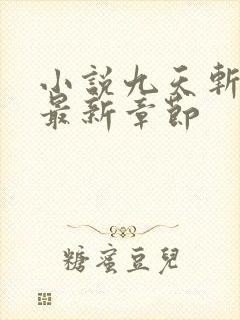 小說九天斬
最新章節
糖蜜豆兒